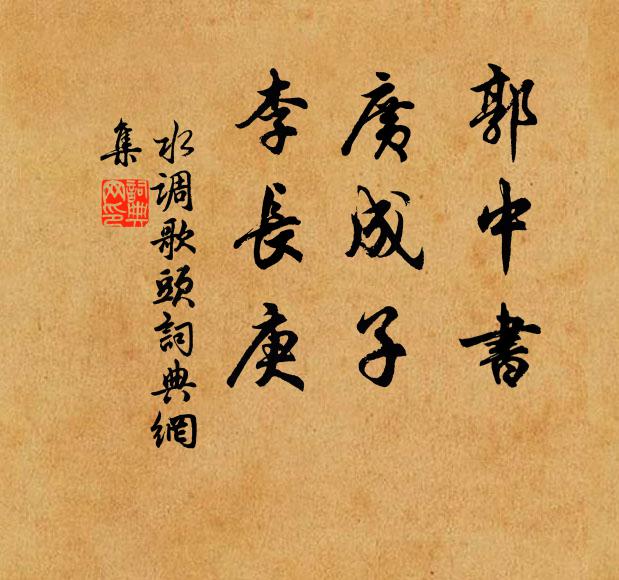 郭中書
廣成子
李長庚
水调歌頭詞典網
集
詞典网印